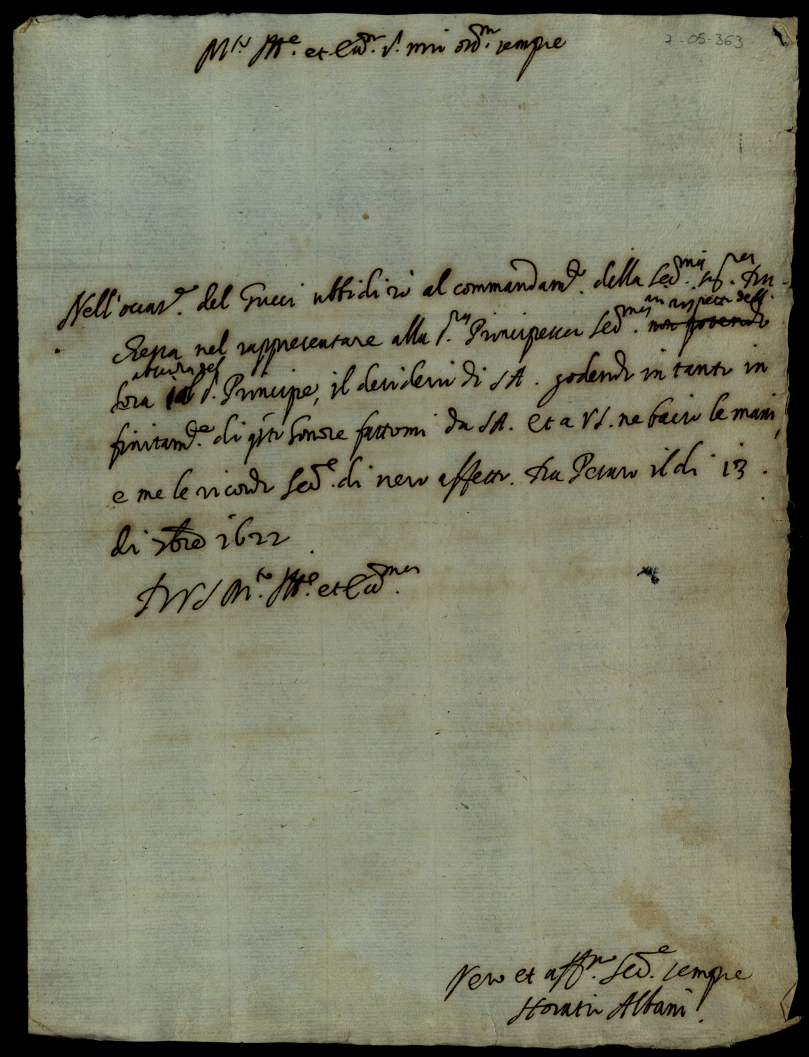 2-05-363
M.to Ill.e et Ecc.mo S.r mio oss.mo sempre
Nell'occas.e del Gucci ubbidirò al commandam.to della Ser.ma Du-
chessa nel rappresentare alla S.ra Principessa Ser.ma non potendo
hora il S. Principe, il desiderio di S.A. godendo in tanto in
finitam.te di q.sto honore fattomi da S.A. et a V.S. ne bacio le mani,
e me le ricordo Ser.e di vero affetto. Da Pesaro il di 13.
di 1622
Di V.S. M.to Ill.e et Ecc.ma
Vero et aff.mo Ser.e sempre
Horatio Albani